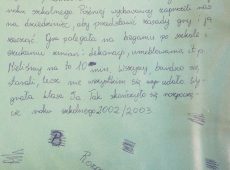 roku szkolnego. Później wychowawcy zaprosili nas
na dziedziniec, aby przedstawić zasady gry, i ją
zacząć. Gra polegała na bieganiu po szkole i
szukaniu zmian - dekoracji, umeblowania itp.
Mieliśmy na to 10 min. Wszyscy bardzo się
starali, lecz nie wszystkim się udało. Wy-
grała klasa Ia. Tak skończyło się rozpoczę-
cie roku szkolnego 2002/2003.